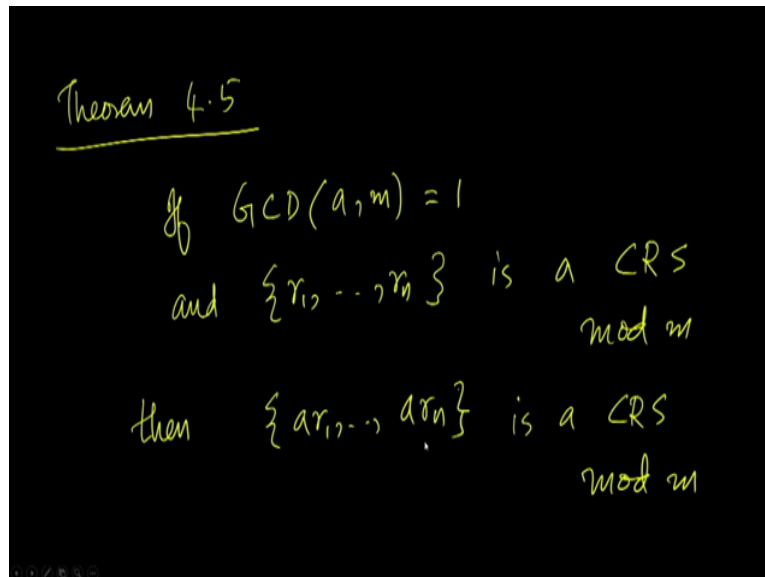 Theorem 4.5
If GCD(a, m) = 1
and {r₁, ..., rₙ} is a CRS
mod m
then {ar₁, .., arₙ} is a CRS
mod m